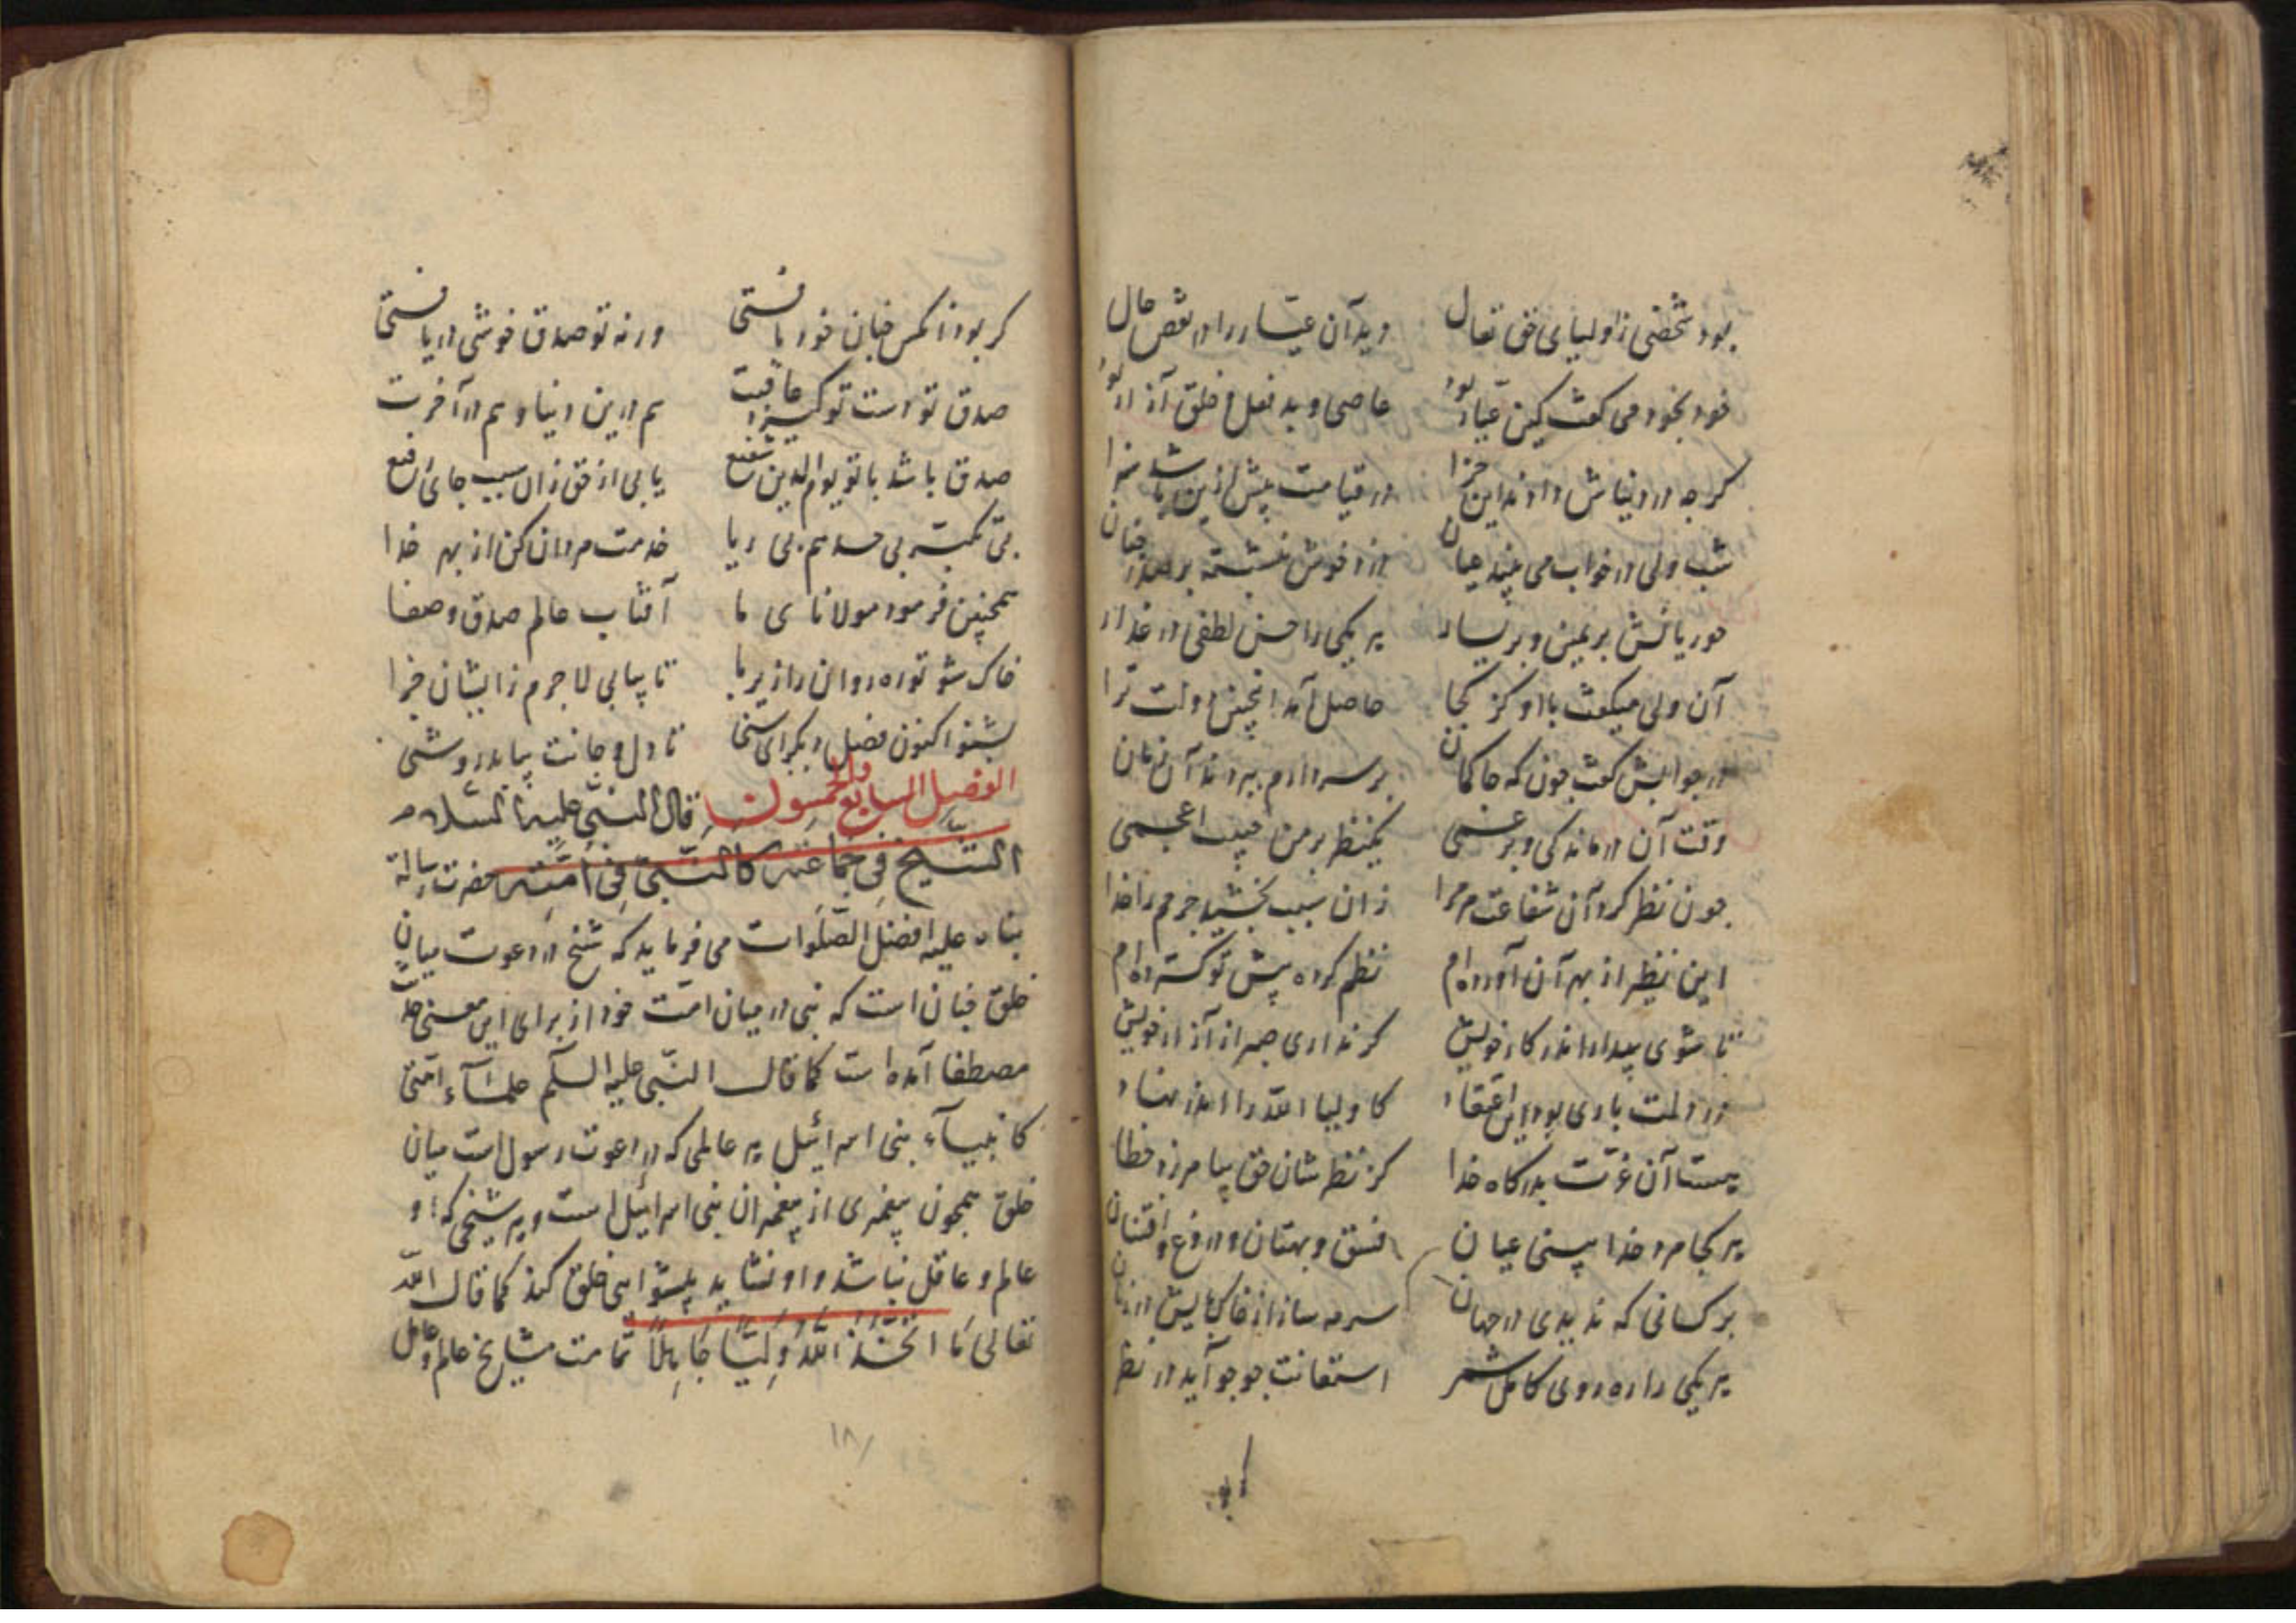 بود شخصی ز اولیای حق تعال دید آن عیار را در نقص حال
خود بخود می کفت کین عیار بود عاصی و بد فعل و خلق آزار بود
کرچه در دنیاش دادند این جزا در قیامت پیش ازین باشد سزا
شب ولی در خواب می بیند عیان دزد خوش نشسته بر صدر جنان
حوریانش بر یمین و بر یسار هر یکی را حسن لطفی در عذار
آن ولی میکفت با او کز کجا حاصل آمد اینچنین دولت ترا
در جوابش کفت چون که حاکمان بر سر دارم ببردند آن زمان
وقت آن درماندکی و بر غمی یکنظر بر من حبیب اعجمی
چون نظر کرد آن شفاعت مر مرا زان سبب بخشید جرمم را خدا
این نظیر از بهر آن آورده ام نظم کرده پیش تو کسترده ام
تا شوی بیدار اندر کار خویش کر نداری صبر از آزار خویش
در دلت باری بود این اعتقاد کاولیا الله را اندر نهاد
هست آن عزت بدرکاه خدا کز نظر شان حق بیامرزد خطا
هر کجا مرد خدا بینی عیان فسق و بهتان و دروغ و افتنان
بر کسانی که ندیدی در جهان سرمه ساز از خاک پایش در زمان
هر یکی را ره روی کامل شمر استعانت جو چو آید در نظر
کر بود
کر بود آنکس چنان خود یافتی ورنه تو صدق خوشی دریافتی
صدق تو دست تو کیرد عاقبت هم درین دنیا و هم در آخرت
صدق باشد با تو یوم الدین شفیع یابی از حق زان سبب جای رفیع
بی تکبر بی حسد هم بی ریا خدمت مردان کن از بهر خدا
همچنین فرمود مولانای ما آفتاب عالم صدق و صفا
خاک شو تو ره روان را زیر پا تا بیابی لا جرم زایشان جزا
بشنو اکنون فصل دیکر ای سخی تا دل و جانت بیابد روشنی
الفصل السابع والخمسون قال النبی علیه السلام
الشیخ فی جماعته کالنبی فی امته حضرت رسالة
پناه علیه افضل الصلوات می فرماید که شیخ در دعوت میان
خلق چنان است که نبی در میان امت خود از برای این معنی حدیث
مصطفا آمده است کما قال النبی علیه السلم علمآء امتی
کانبیآء بنی اسرائیل هر عالمی که در دعوت رسول است میان
خلق همچون پیغمبری از پیغمبران بنی اسرائیل است و هر شیخی که او
عالم و عاقل نباشد و او نشاید پیشوایی خلق کند کما قال الله
تعالی ما اتخذ الله ولیا جاهلا تمامت مشایخ عالم و عامل
١٨١